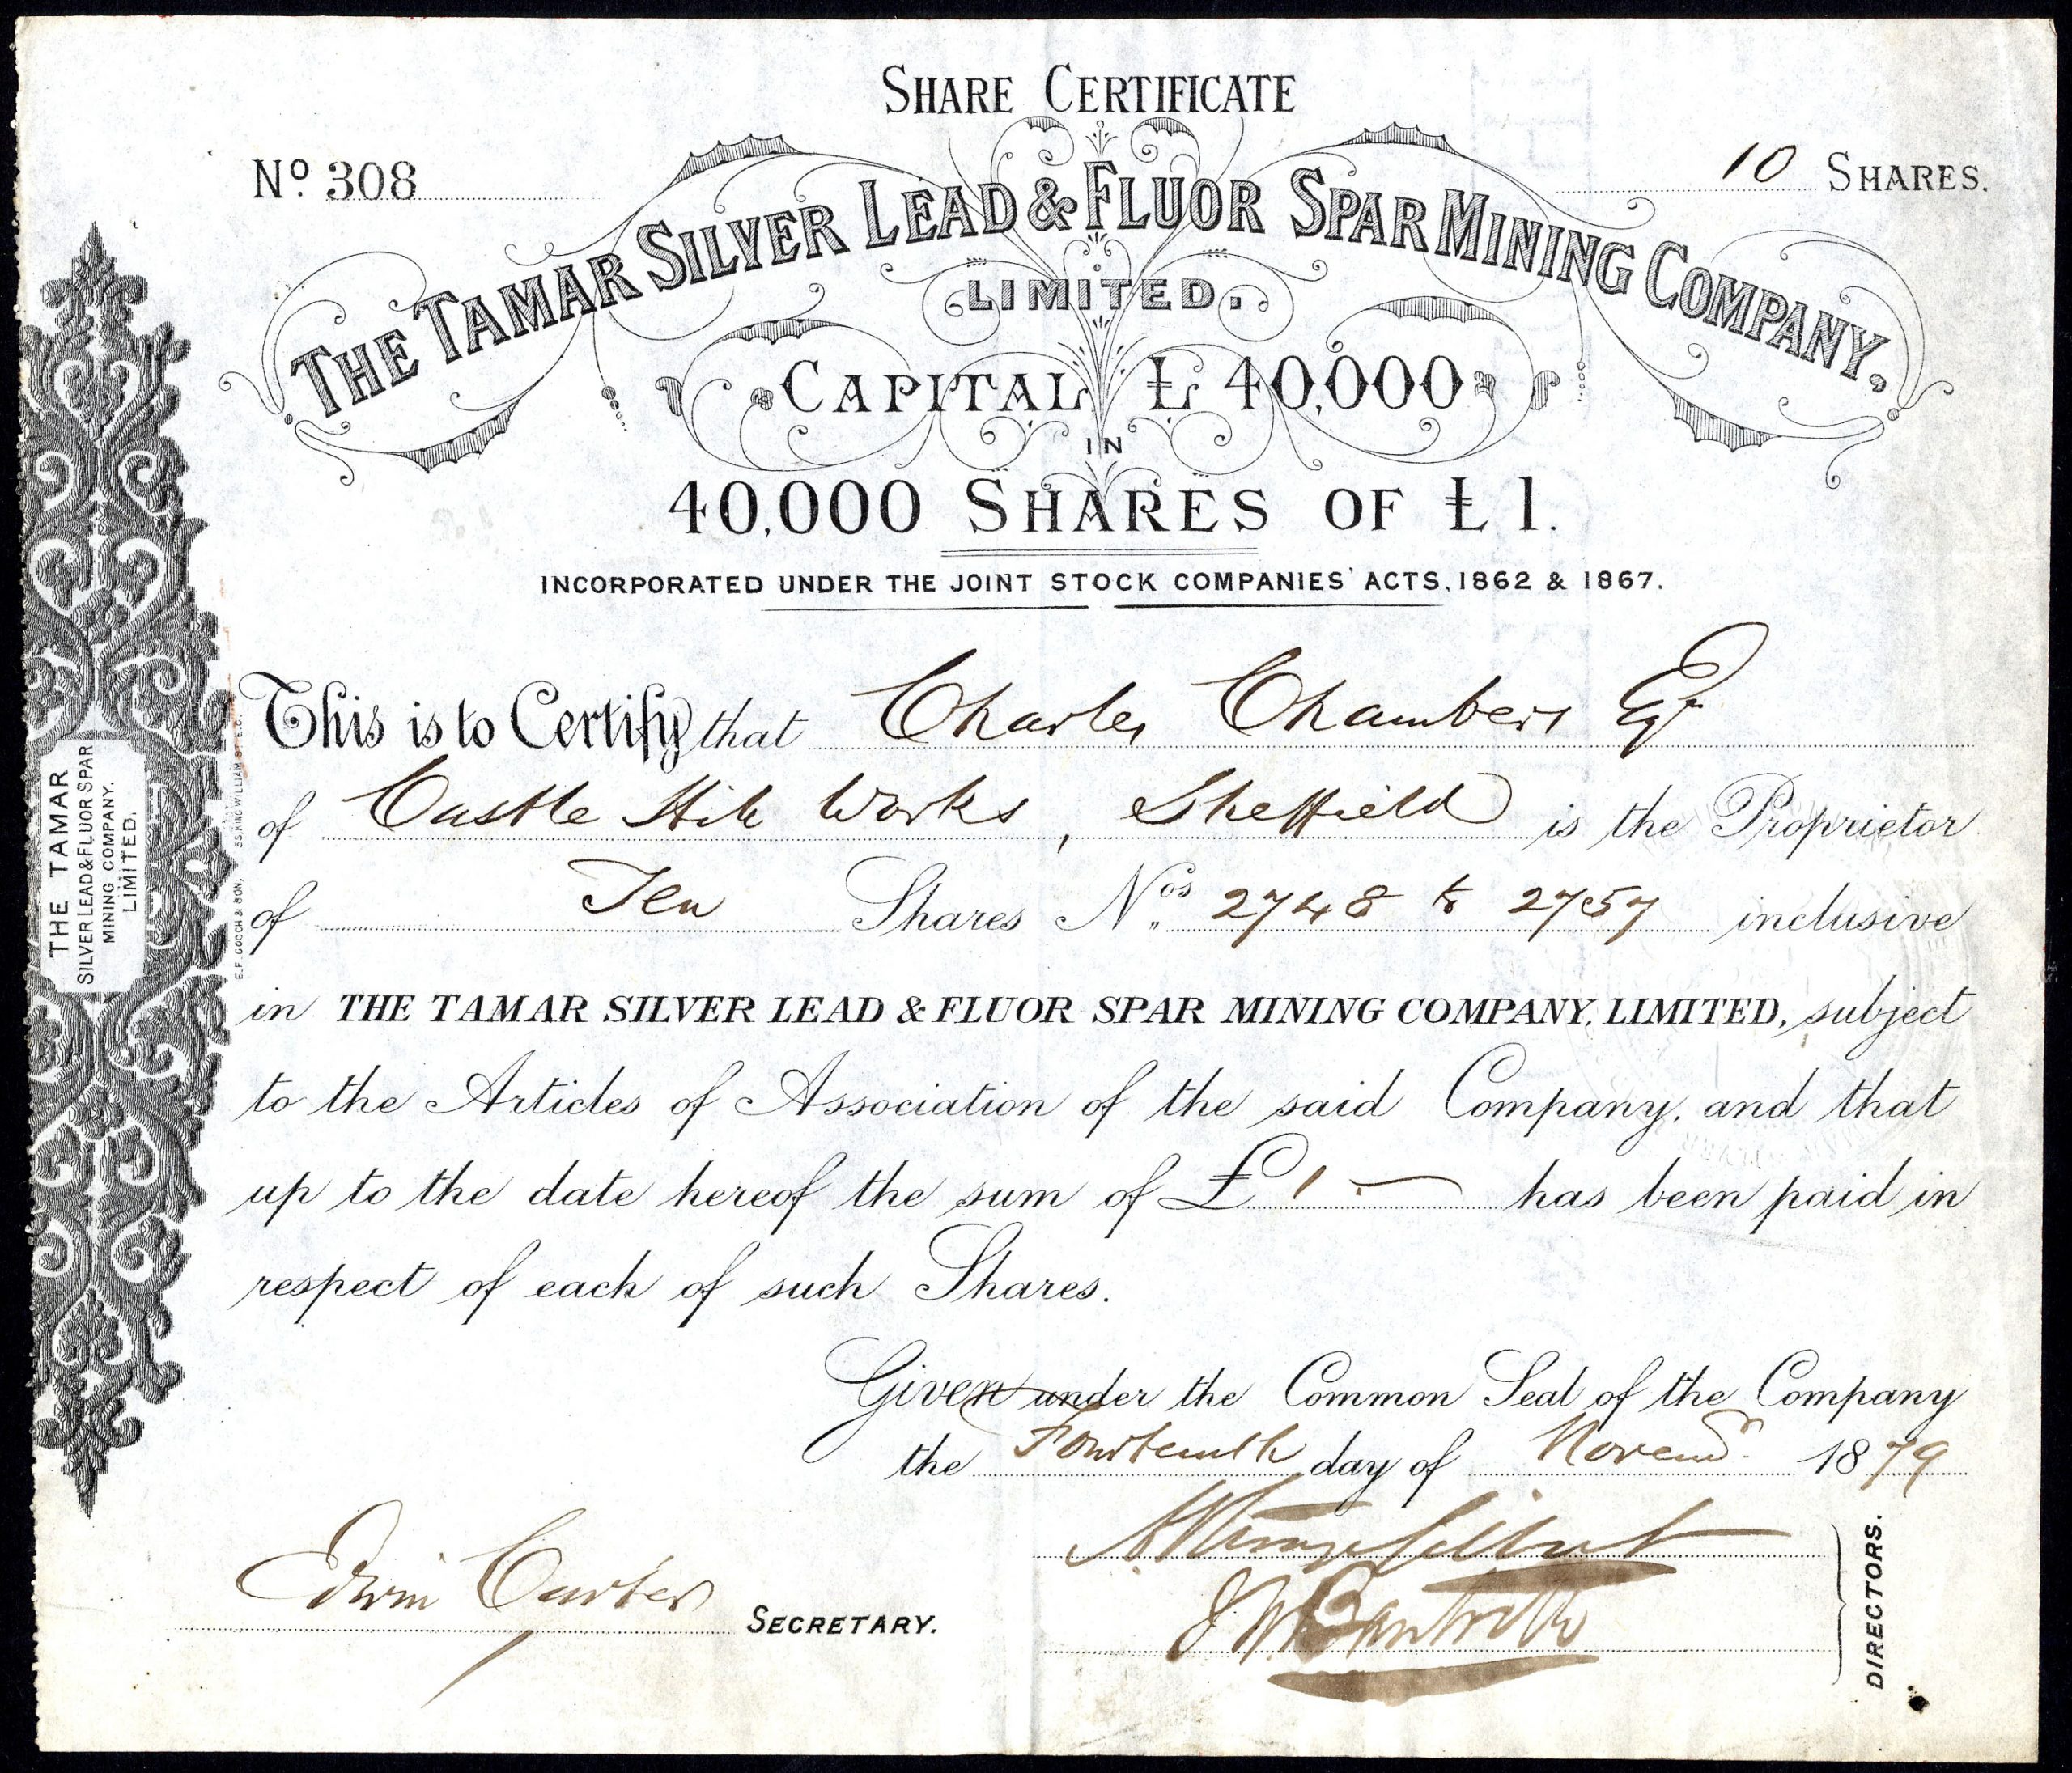 SHARE CERTIFICATE
Nº 308
10 SHARES.
THE TAMAR SILVER LEAD & FLUOR SPAR MINING COMPANY,
LIMITED.
CAPITAL £40,000
IN
40,000 SHARES OF £1.
INCORPORATED UNDER THE JOINT STOCK COMPANIES' ACTS, 1862 & 1867.
This is to Certify that Charles Chambers Esqr
of Castle Hill Works, Sheffield is the Proprietor
of Ten Shares Nos. 2748 to 2757 inclusive
in THE TAMAR SILVER LEAD & FLUOR SPAR MINING COMPANY, LIMITED, subject
to the Articles of Association of the said Company, and that
up to the date hereof the sum of £1.— has been paid in
respect of each of such Shares.
Given under the Common Seal of the Company
the Fourteenth day of Novemr. 1879
Edwin Carter SECRETARY.
DIRECTORS.
THE TAMAR
SILVER LEAD & FLUOR SPAR
MINING COMPANY.
LIMITED.
E.F. GOOCH & SON, 55, KING WILLIAM ST. E.C.